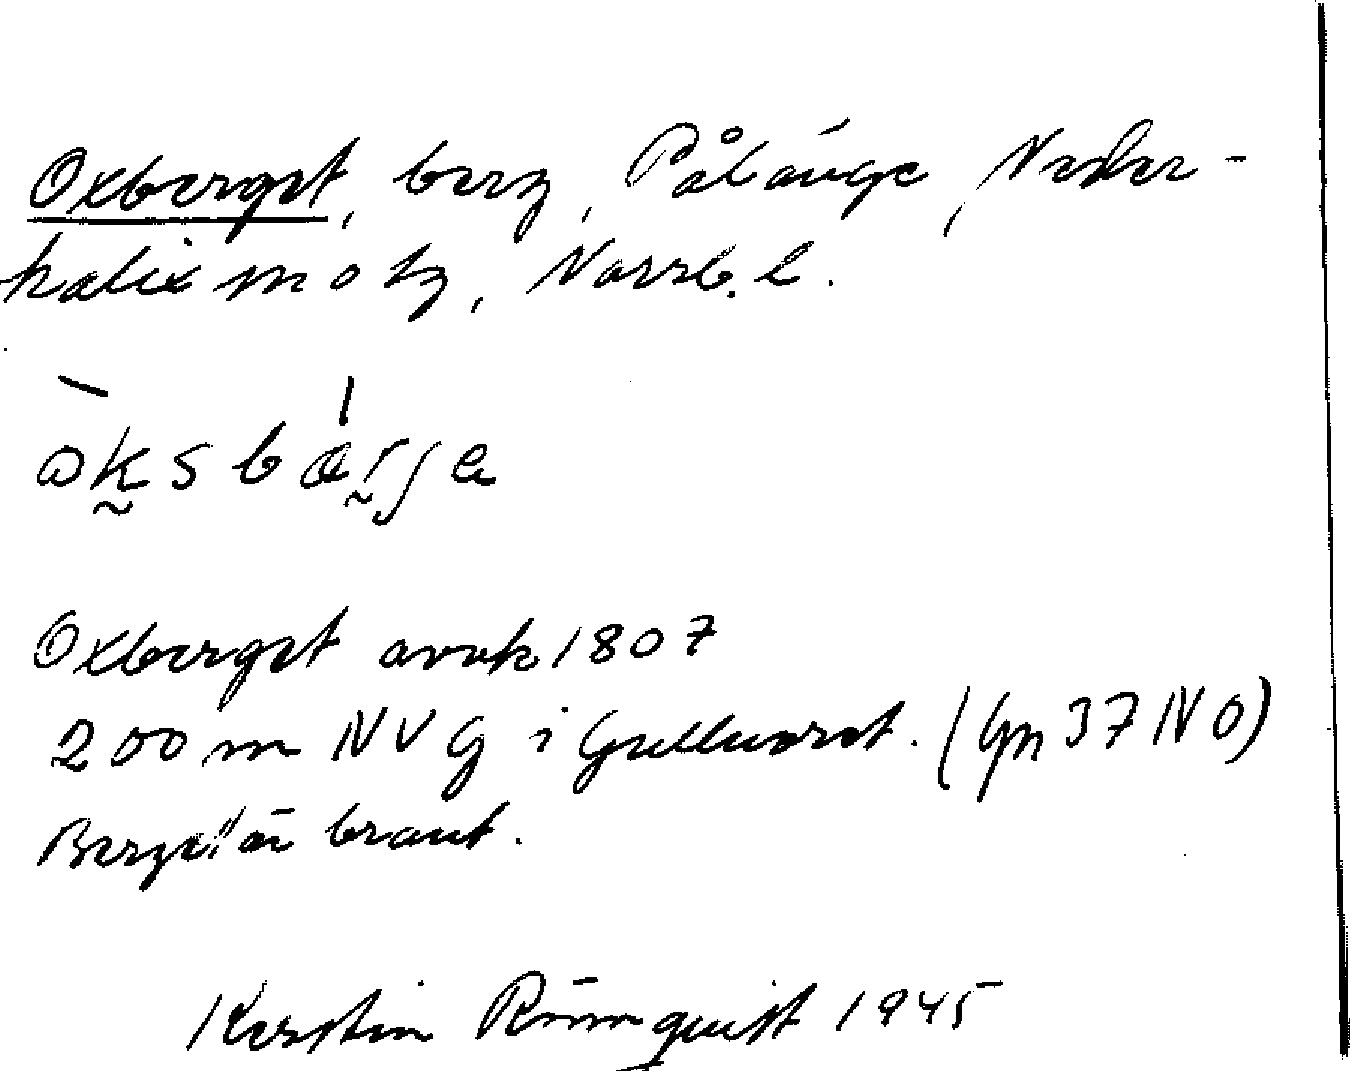 Oxberget, berg, Pålänge, Neder-
kalix m o tg, Norrb. l.
òksbǽrje
Oxberget avvk 1807
200 m NV G i Gulluvret. (Gn 37 NO)
Berget är brant.
Kerstin Rönnquist 1945